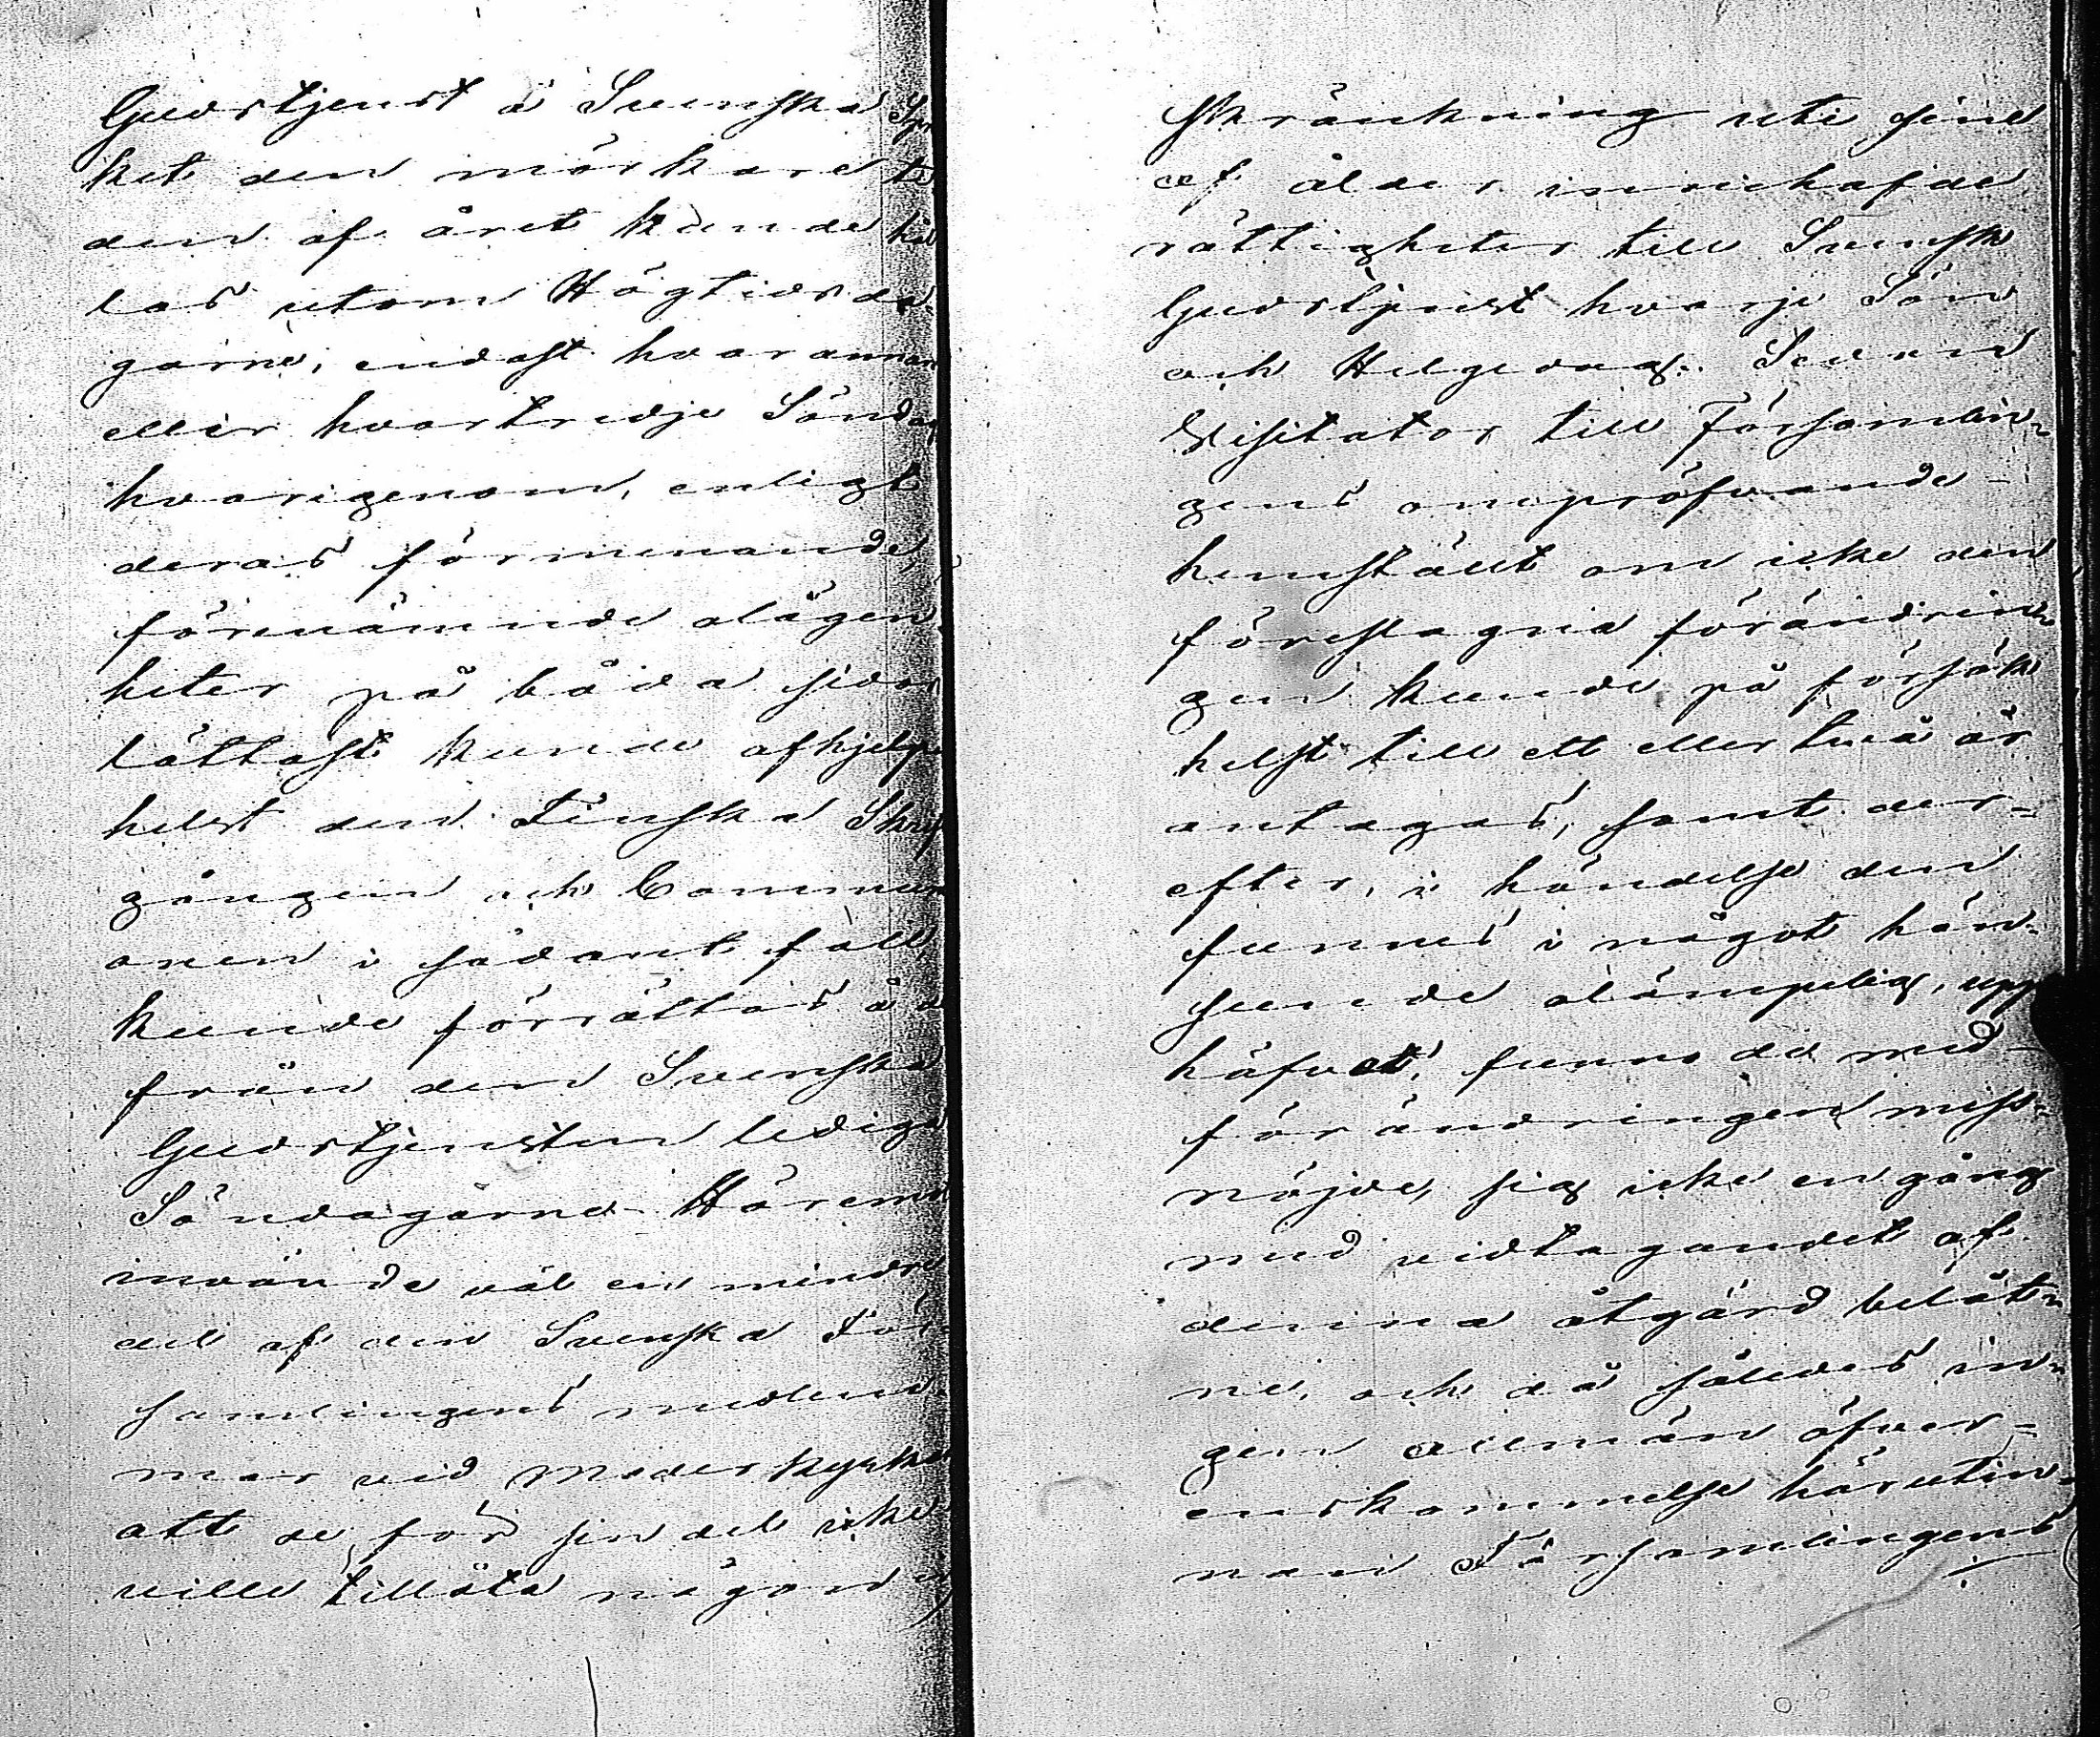 Gudstjenst å Svenska Språ
ket den mörkare ti
den af året kunde hål
las utom Högtidsda
garne, endast hvarannan
eller hvartredje Söndag
hvarigenom, enligt
deras förmenande,
förenämnde olägen
heter på båda sidor
lättast kunde afhjelpas
helst den Finska Skrift
gången och Communi
onen i sådant fall,
kunde förrättas å de
från den Svenska
Gudstjensten lediga
Söndagarne. Häremot
invände väl en mindre
del af den Svenska För
samlingens medlem
mar vid Moderkyrkan
att de för sin del icke
ville tillåta någon in
skränkning uti sine
af ålder innehafde
rättigheter till Svensk
Gudstjenst hvarje Sön
och Helgedag. Sedan
Visitator till Församlin¬
gens ompröfvande
hemstält om icke den
föreslagna förändrin¬
gen kunde på försök
helst till ett eller två år
antagas, samt der¬
efter, i händelse den
funnes i något hän¬
seende olämpelig, upp
häfvet, funno de med
förändringen miss¬
nöjde, sig icke en gång
med vidtagandet af
denna åtgärd belåt¬
ne, och då således in¬
gen allmän öfver¬
enskommelse härutin¬
nan Församlingens